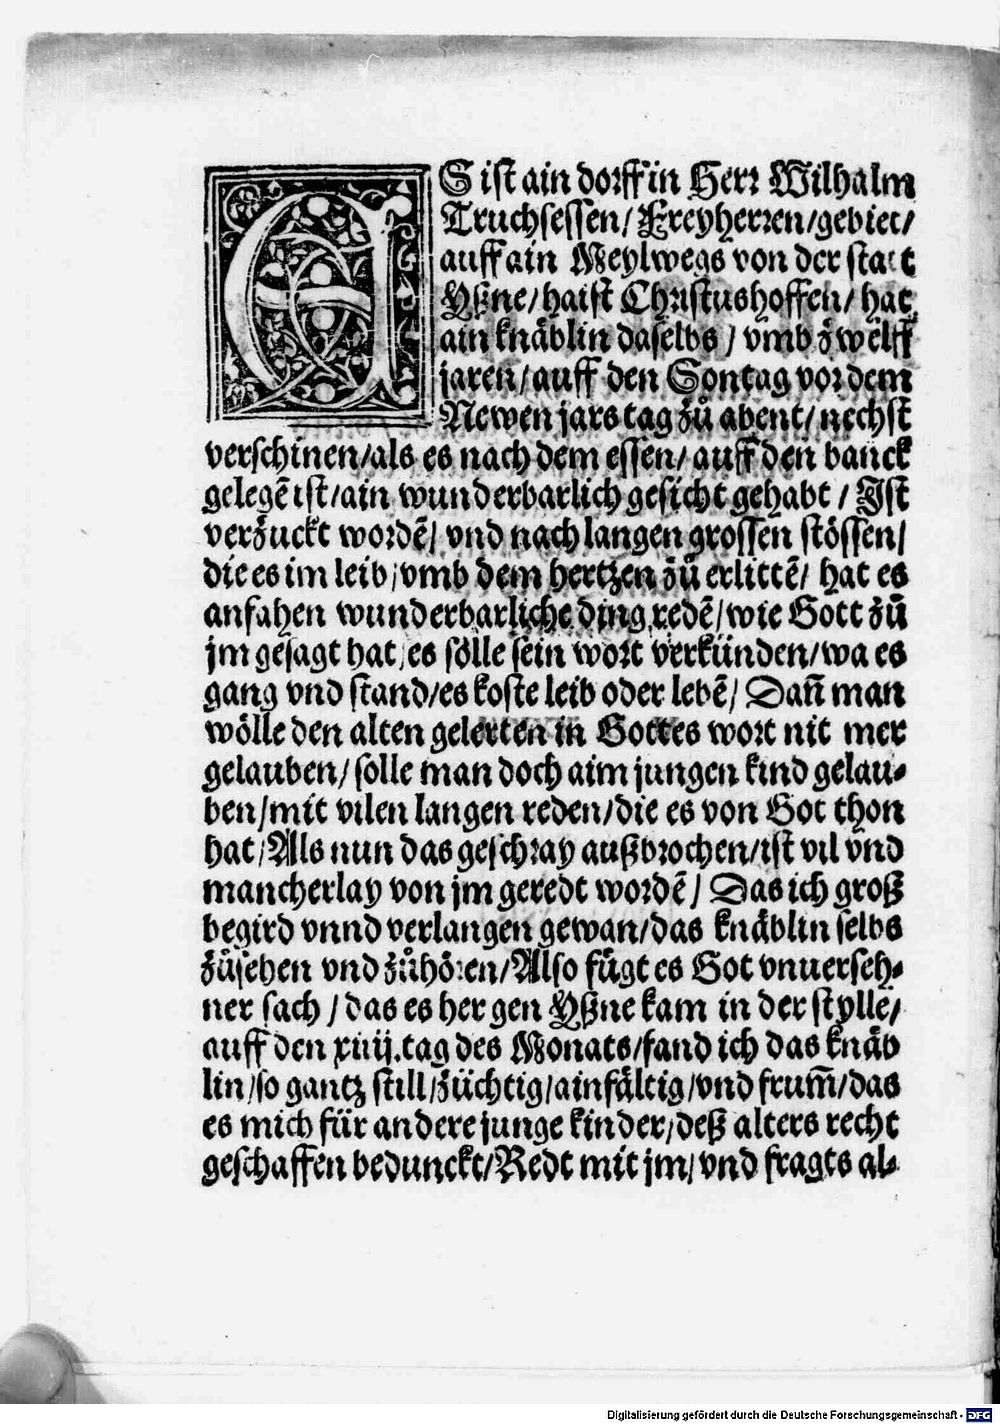 ES ist ain dorff in Herr Wilhalm
Truchsessen/ Freyherren/gebiet/
auff ain Meylwegs von der statt
Yßne/haist Christushoffen/ hat
ain knäblin daselbs / vmb zwelff
jaren/auff den Sontag vor dem
Newen jars tag zů abent/ nechst
verschinen/als es nach dem essen/ auff den banck
gelegē ist/ain wunderbarlich gesicht gehabt / Jst
verzuckt wordē/ vnd nach langen grossen stössen/
die es im leib/vmb dem hertzen zů erlittē/ hat es
anfahen wunderbarliche ding redē/wie Gott zů
jm gesagt hat/es sölle sein wort verkünden/wa es
gang vnd stand/es koste leib oder lebē/ Dañ man
wölle den alten gelerten in Gottes wort nit mer
gelauben/ solle man doch aim jungen kind gelau-
ben/mit vilen langen reden/die es von Got thon
hat/Als nun das geschray außbrochen/ist vil vnd
mancherlay von jm geredt wordē/ Das ich groß
begird vnnd verlangen gewan/das knäblin selbs
zůsehen vnd zůhören/Also fügt es Got vnuerseh-
ner sach / das es her gen Yßne kam in der stylle/
auff den xiiij.tag des Monats/fand ich das knäb
lin/so gantz still/züchtig/ainfältig/vnd frum̄/das
es mich für andere junge kinder/deß alters recht
geschaffen bedunckt/Redt mit jm/ vnd fragts al-
Digitalisierung gefördert durch die Deutsche Forschungsgemeinschaft - DFG